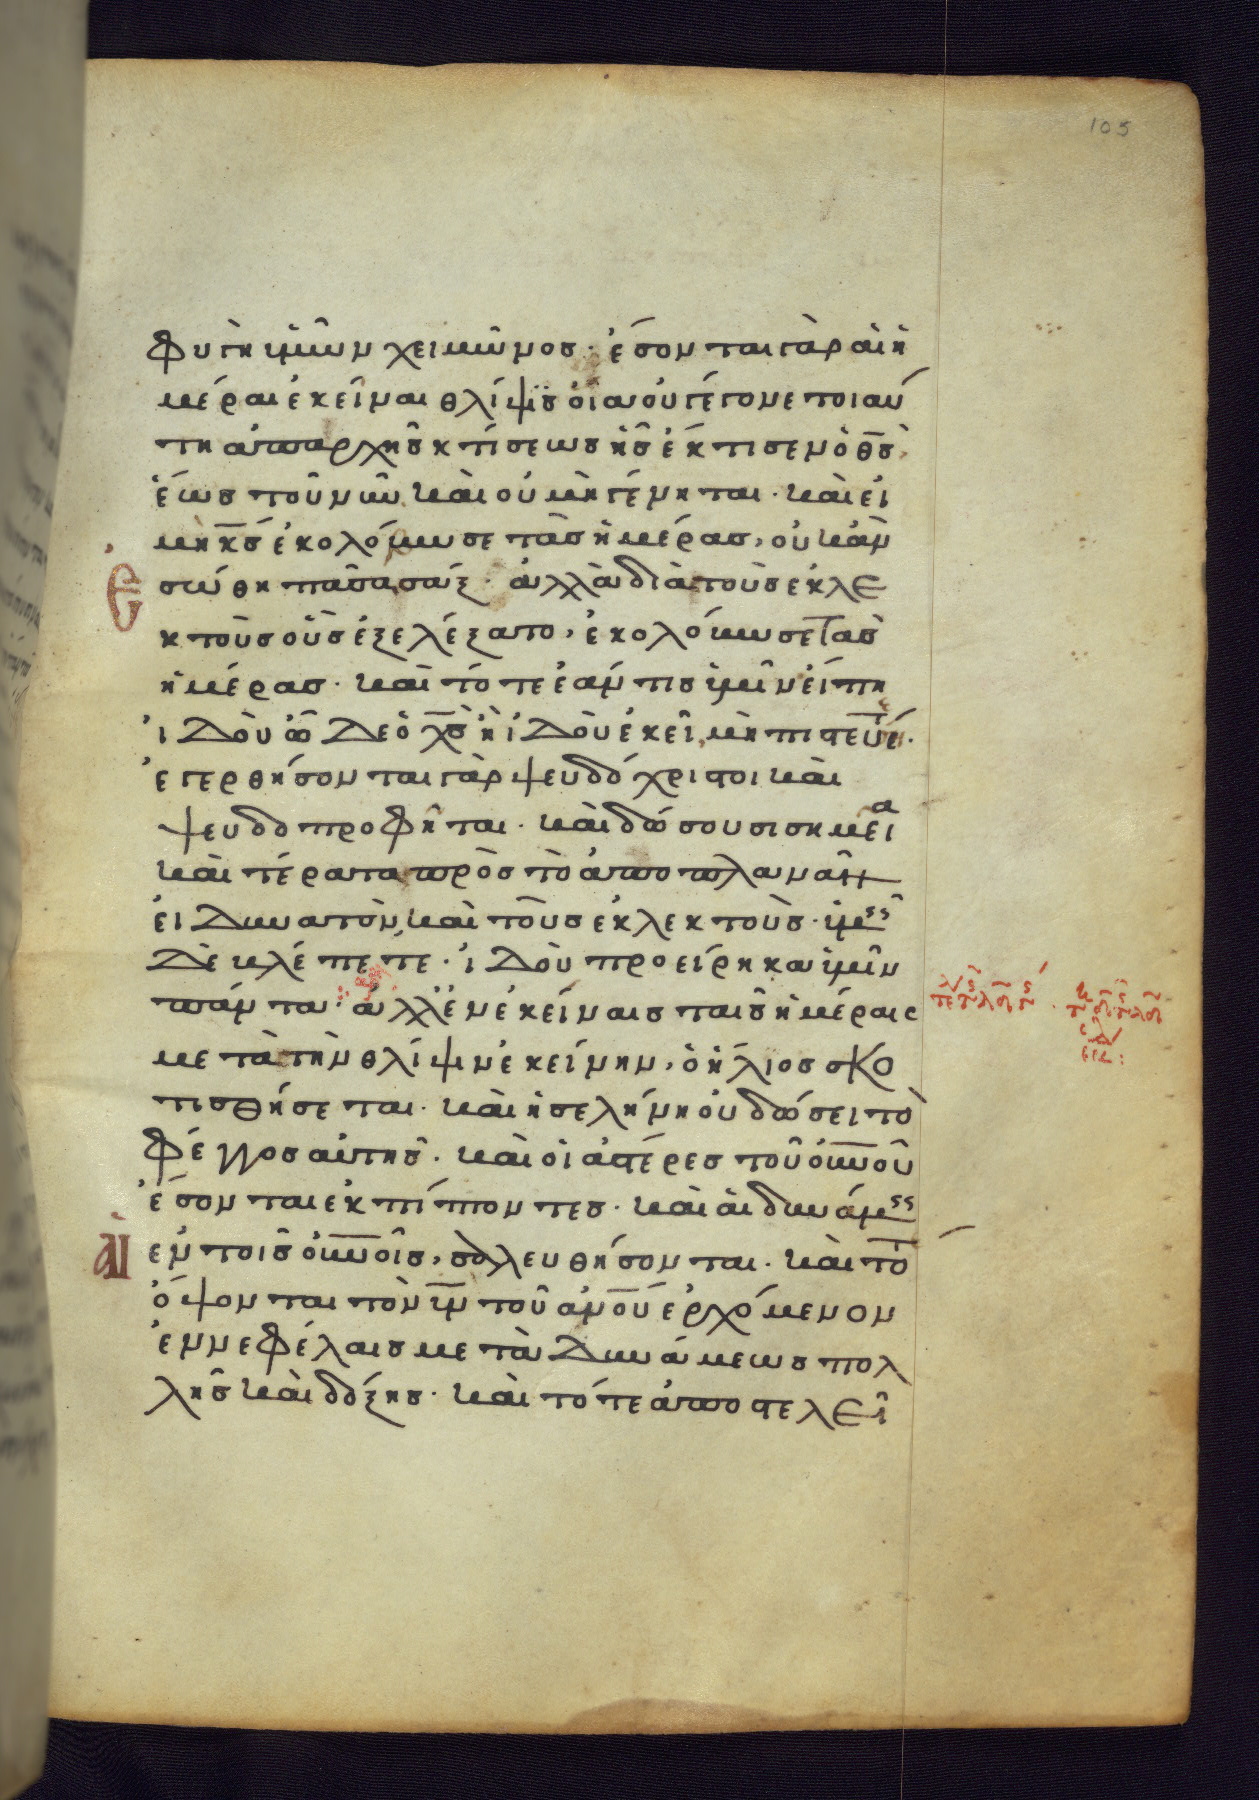 105
φυγὴ ὑμῶν χειμῶνος· ἔσονται γὰρ αἱ ἡ
μέραι ἐκεῖναι θλίψις οἵα οὐ γέγονε τοιαύ
τη ἀπαρχῆς κτίσεως ἧς ἔκτισεν ὁ θς̅,
ἕως τοῦ νῦν καὶ οὐ μὴ γένηται· καὶ εἰ
μὴ κς̅ ἐκολόβωσε τὰς ἡμέρας, οὐκ ἂν
ἐσώθη πᾶσα σάρξ· ἀλλὰ διὰ τοὺς ἐκλε
κτοὺς οὓς ἐξελέξατο, ἐκολόβωσε τὰς
ἡμέρας· καὶ τότε ἐάν τις ὑμῖν εἴπη
ἰδοὺ ὧδε ὁ χς̅ ἢ ἰδοὺ ἐκεῖ, μὴ πιστεύε·
ἐγερθήσονται γὰρ ψευδόχριστοι καὶ
ψευδοπροφῆται· καὶ δώσουσι σημεῖα
καὶ τέρατα πρὸς τὸ ἀποπλανᾶν
εἰ δυνατὸν, καὶ τοὺς ἐκλεκτούς· ὑμεῖς
δὲ βλέπετε· ἰδοὺ προείρηκα ὑμῖν
πάντα· ἀλλ' ἐν ἐκείναις ταῖς ἡμέραις
μετὰ τὴν θλίψιν ἐκείνην, ὁ ἥλιος σκο
τισθήσεται· καὶ ἡ σελήνη οὐ δώσει τὸ
φέγγος αὐτῆς· καὶ οἱ ἀστέρες τοῦ οὐνοῦ
ἔσονται ἐκπίπτοντες· καὶ αἱ δυνάμεις
αἱ ἐν τοῖς οὐνοῖς, σαλευθήσονται· καὶ τό
ὄψονται τὸν ὑν̅ τοῦ ἀνοῦ ἐρχόμενον
ἐν νεφέλαις μετὰ δυνάμεως πολ
λῆς καὶ δόξης· καὶ τότε ἀποστελεῖ